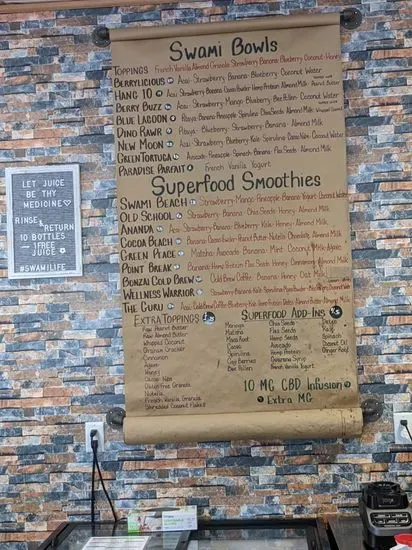 Swami Bowls
Toppings French Vanilla Almond Granola Strawberry Banana Blueberry Coconut Honey
Berrylicious Acai Strawberry Banana Blueberry Coconut Water
Hang 10 Acai Strawberry Banana Hemp Protein Almond Milk
Berry Buzz Acai Strawberry Mango Blueberry Bee Pollen Coconut Water
Blue Lagoon Banana Pineapple Spirulina Almond Milk
Dino Rawr Blueberry Strawberry Banana Almond Milk
New Moon Acai Strawberry Blueberry Kale Spirulina Dates Coconut Water
Green Tortuga Avocado Pineapple Spinach Banana Almond Milk
Paradise Parfait French Vanilla Yogurt
Superfood Smoothies
Swami Beach Strawberry Mango Pineapple Banana Yogurt Coconut Water
Old School Strawberry Banana Chia Seeds Honey Almond Milk
Ananda Acai Strawberry Banana Blueberry Kale Honey Almond Milk
Cocoa Beach Banana Peanut Butter Almond Milk
Green Peace Matcha Avocado Banana Mint Coconut Milk
Point Break Banana Hemp Protein Flax Seeds Honey Almond Milk
Bonzai Cold Brew Cold Brew Coffee Banana Honey Oat Milk
Wellness Warrior Strawberry Banana Kale Spirulina
The Guru Acai Cold Brew Coffee Blueberry Kale Hemp Protein Dates Almond Butter Almond Milk
Extra Toppings
Superfood Add-Ins
Raw Peanut Butter
Raw Almond Butter
Whipped Coconut
Graham Cracker
Cinnamon
Agave
Honey
Cacao Nibs
Gluten Free Granola
Nutella
French Vanilla Granola
Shredded Coconut Flakes
Moringa
Matcha
Maca Root
Cacao
Spirulina
Goji Berries
Bee Pollen
Chia Seeds
Flax Seeds
Hemp Seeds
Avocado
Hemp Protein
French Vanilla Yogurt
Dates
Kale
Spinach
Coconut Oil
Ginger Root
10 MG CBD Infusion
Extra MG
LET JUICE
BE THY
MEDICINE♡
RINSE &
RETURN
10 BOTTLES
1 FREE
JUICE
#SWAMILIFE